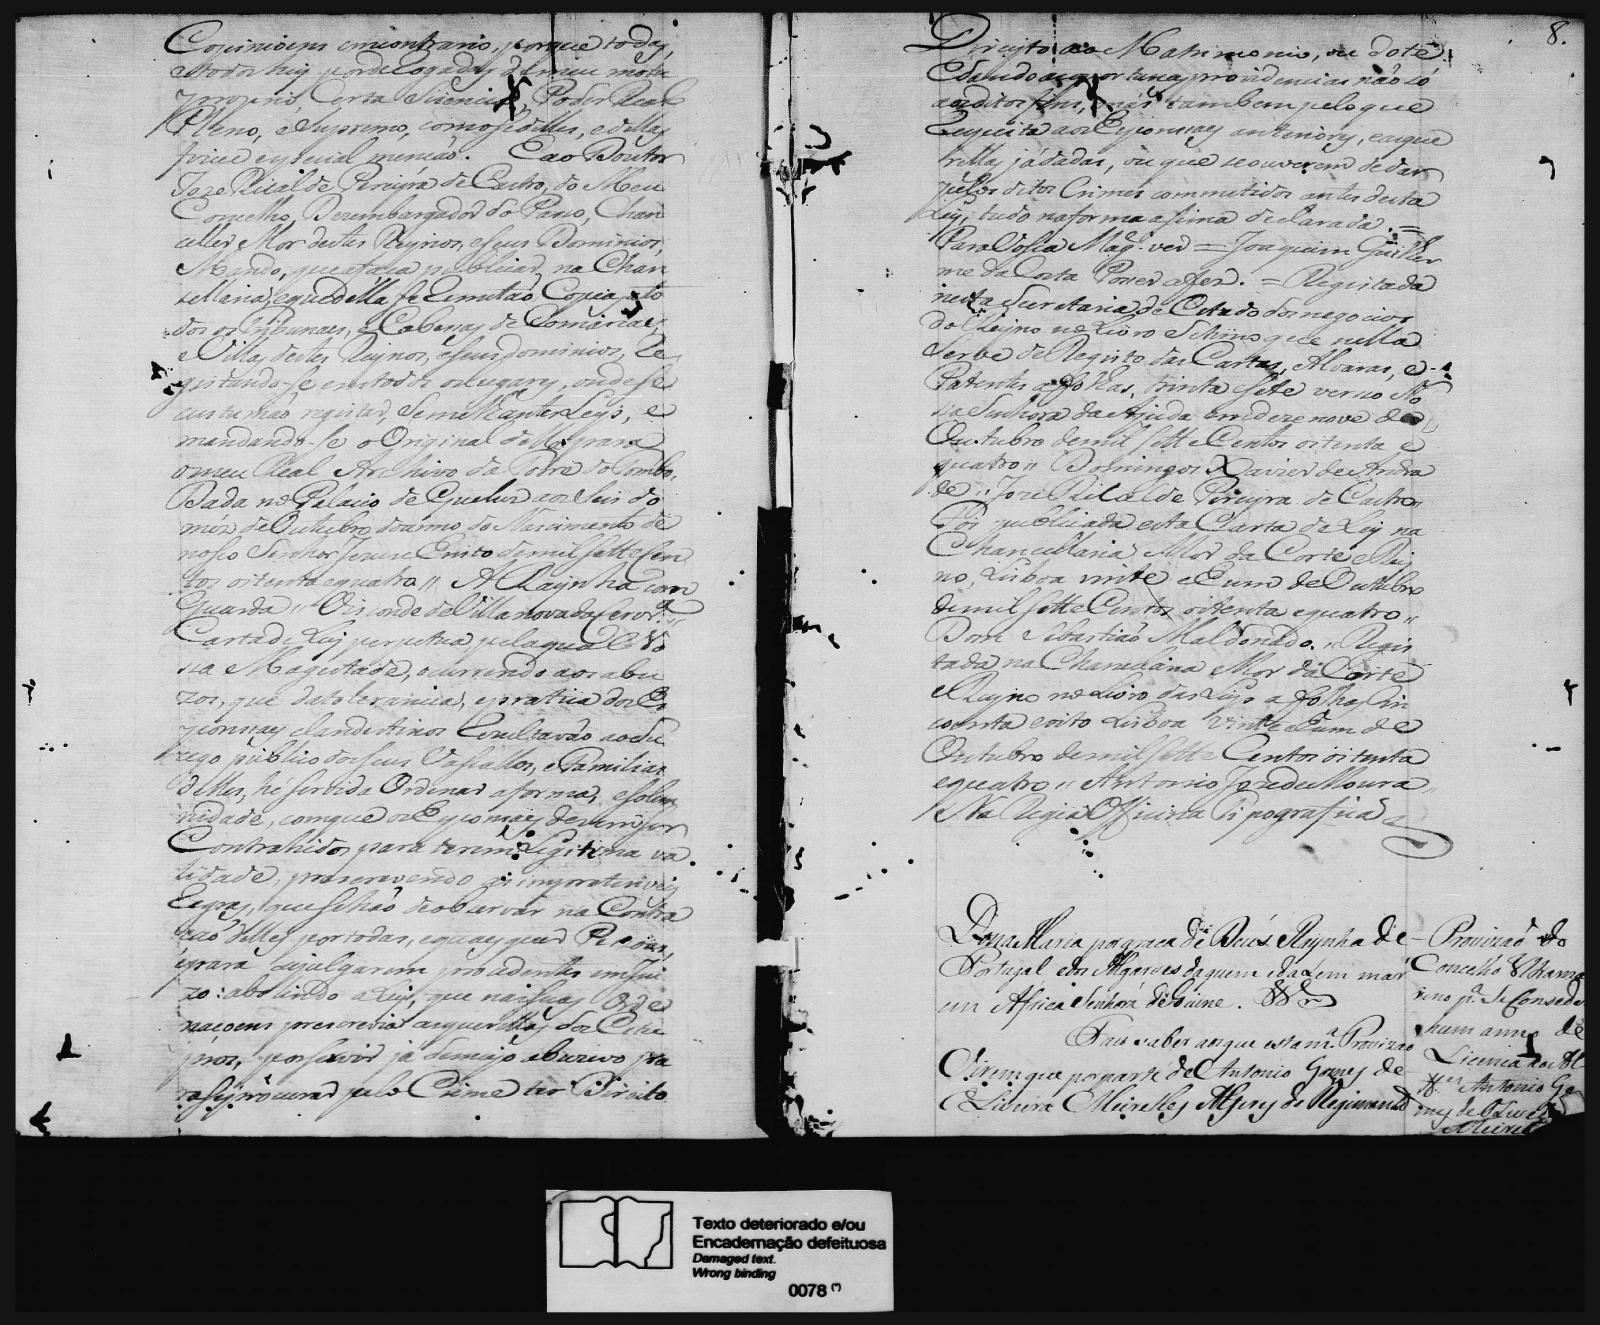 Opinioens em contrario, porque todas,
e todos hey por derogadas de meu motu
proprio, Certa Siencia, Poder Real
Pleno, e Supremo, como se dellas, e dellas
fizece especial mencaõ. E ao Doutor
Joze Ricalde Pereyra de Castro, do Meu
Concelho, Dezembargador do Paço, Chan
celler Mor destes Reynos, e seus Dominios,
Mando, que a faça publicar na Chan
cellaria, e que della se Remetaõ Copias a to
dos os Tribunaes, e Cabeças de Comarcas,
e Villas destes Reynos, e seus dominios, Re
gistando-se em todos os lugares, onde se
custumaõ registar, Semelhantes Leys, e
mandando-se o Original della para
o meu Real Archivo da Torre do Tombo.
Dada no Palacio de Queluz aos Seis do
mez de Outubro do anno do Nascimento de
nosso Senhor Jezus Cristo de mil sette Cen
tos oitenta e quatro,, A Raynha com
Guarda,, Visconde de Villa nova da Cerv.ª,,
Carta de Ley perpetua, pela qual Vo
ssa Magestade, ocurrendo aos abu
zos, que da tolerancia, e pratica dos Es
ponsaes clandestinos Rezultavaõ ao So
cego publico dos seus Vassallos, e Familias
delles, hé servida Ordenar a forma, e solem
nidade, com que os Esponsaes devem ser
Contrahidos para terem Legitima va
lidade, prescrevendo as impreteriveis
Regras, que se haõ de observar na Contra
çaõ delles por todas, e quaes quer Pessoas,
e para se julgarem procedentes em Jui
zo: abolindo a Ley, que nas suas Orde
naçoens prescrevia aquellas dos Espo
zos, por servir já de mayo abuzivo pa
ra se procurar pelo Crime ter Direito
8.
Direyto ao Matrimonio, ou dote.
E dando as oportunas providencias não só
aos ditos fins, mas tambem pelo que
Respeita aos Esponsaes anteriores, e a que
rellas já dadas, ou que se ouverem de dar
pelos ditos Crimes commetidos antes desta
Ley, tudo na forma asima declarada. =
Para Vossa Mag.e ver = Joaquim Guilher
me da Costa Posser a fez. = Registada
nesta Secretaria de Estado dos negocios
do Reyno no Livro Setimo que nella
Serve de Registo das Cartas, Alvaras, e
Patentes a folhas, trinta e sete verso No
ssa Senhora da Ajuda em deze nove de
Outubro de mil sette Centos oitenta e
quatro,, Domingos Xavier de Andra
de,, Joze Ricalde Pereyra de Castro,,
Foi publicada esta Carta de Ley na
Chancellaria Mor da Corte e Rey
no, Lisboa vinte e Eum de Outubro
de mil sette Centos oitenta e quatro,,
Dom Sebastiaõ Maldonado,, Regis
tada na Chancelaria Mor da Corte
e Reyno no Livro das Leys a folhas Cin
coenta e oito Lisboa vinte e Eum de
Outubro de mil sette Centos oitenta
e quatro,, Antonio Joze de Moura,,
Na Regia Officina Tipografica
Dona Maria por graca de Deús Raynha de
Portugal e dos Algarves daquem e da Lem mar
em Africa Senhora de Guiné.
Faço saber aos que esta m.ª Provizaõ
Virem que por parte de Antonio Gomes de
Oliveira Meirelles Alferes do Regimento
Provizaõ do
Concelho Ultrama
rino p.ª Se Conseder
hum anno de
Licenca ao Al
ff.es Antonio Go
mes de Oliveir
Meirel
Texto deteriorado e/ou
Encadernação defeituosa
Damaged text.
Wrong binding
0078 (*)